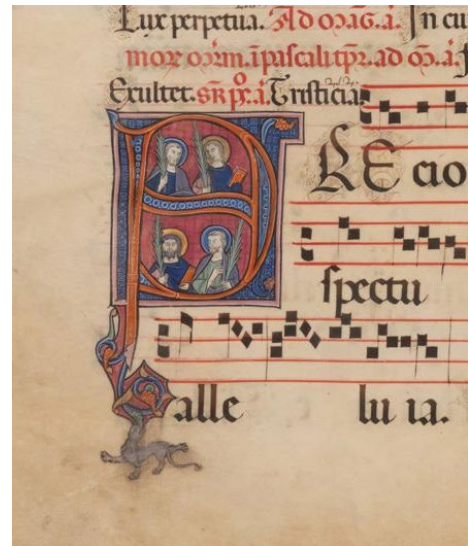 Lux perpetua. Ad mag. a. In cu
pascali tpr. ad
Exultet. Tristicia
PRE cio
spectu
alle lu ia.